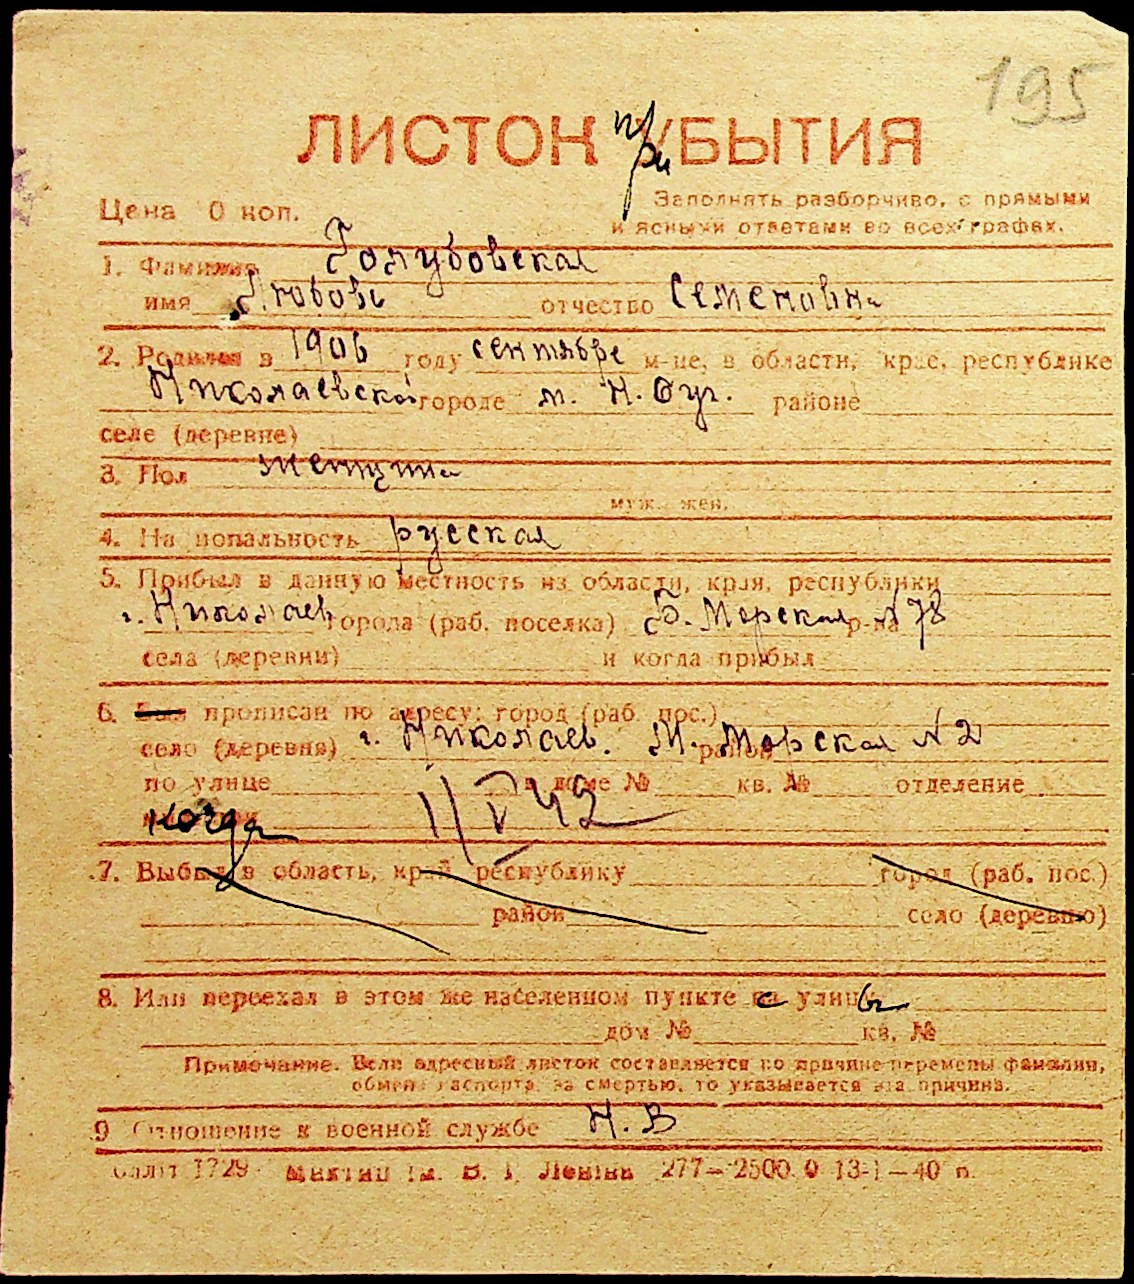 195
ЛИСТОК при УБЫТИЯ
Цена 0 коп.
Заполнять разборчиво, с прямыми
и ясными ответами во всех графах.
1. Фамилия Голубовская
имя Любовь отчество Семеновна
2. Родился в 1906 году сентябре м-це, в области, крае, республике
Николаевской городе м. Н. Буг. районе
селе (деревне)
3. Пол женщина
муж. жен.
4. Национальность русская
5. Прибыл в данную местность из области, края, республики
г. Николаев города (раб. поселка) Б. Морская р-на №78
села (деревни) и когда прибыл
6. Был прописан по адресу: город (раб. пос.)
село (деревня) г. Николаев. М. Морская район №2
по улице в доме № кв. № отделение
когда 11/V 42
7. Выбыл в область, край республику город (раб. пос.)
район село (деревню)
8. Или переехал в этом же населенном пункте с улицы
дом № кв. №
Примечание. Если адресный листок составляется по причине перемены фамилии,
обмена паспорта, за смертью, то указывается эта причина.
9 Отношение к военной службе Н. В
1729 ім. В. І. Леніна 277—2500 13-1—40 п.